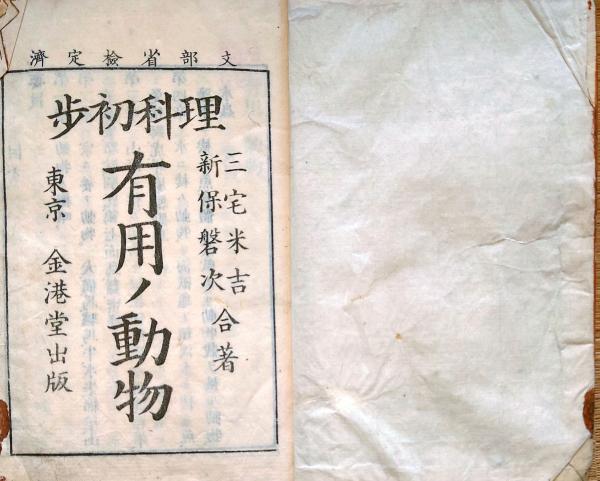 文部省検定済
理科初歩
三宅米吉
新保磐次
合著
有用ノ動物
東京 金港堂出版